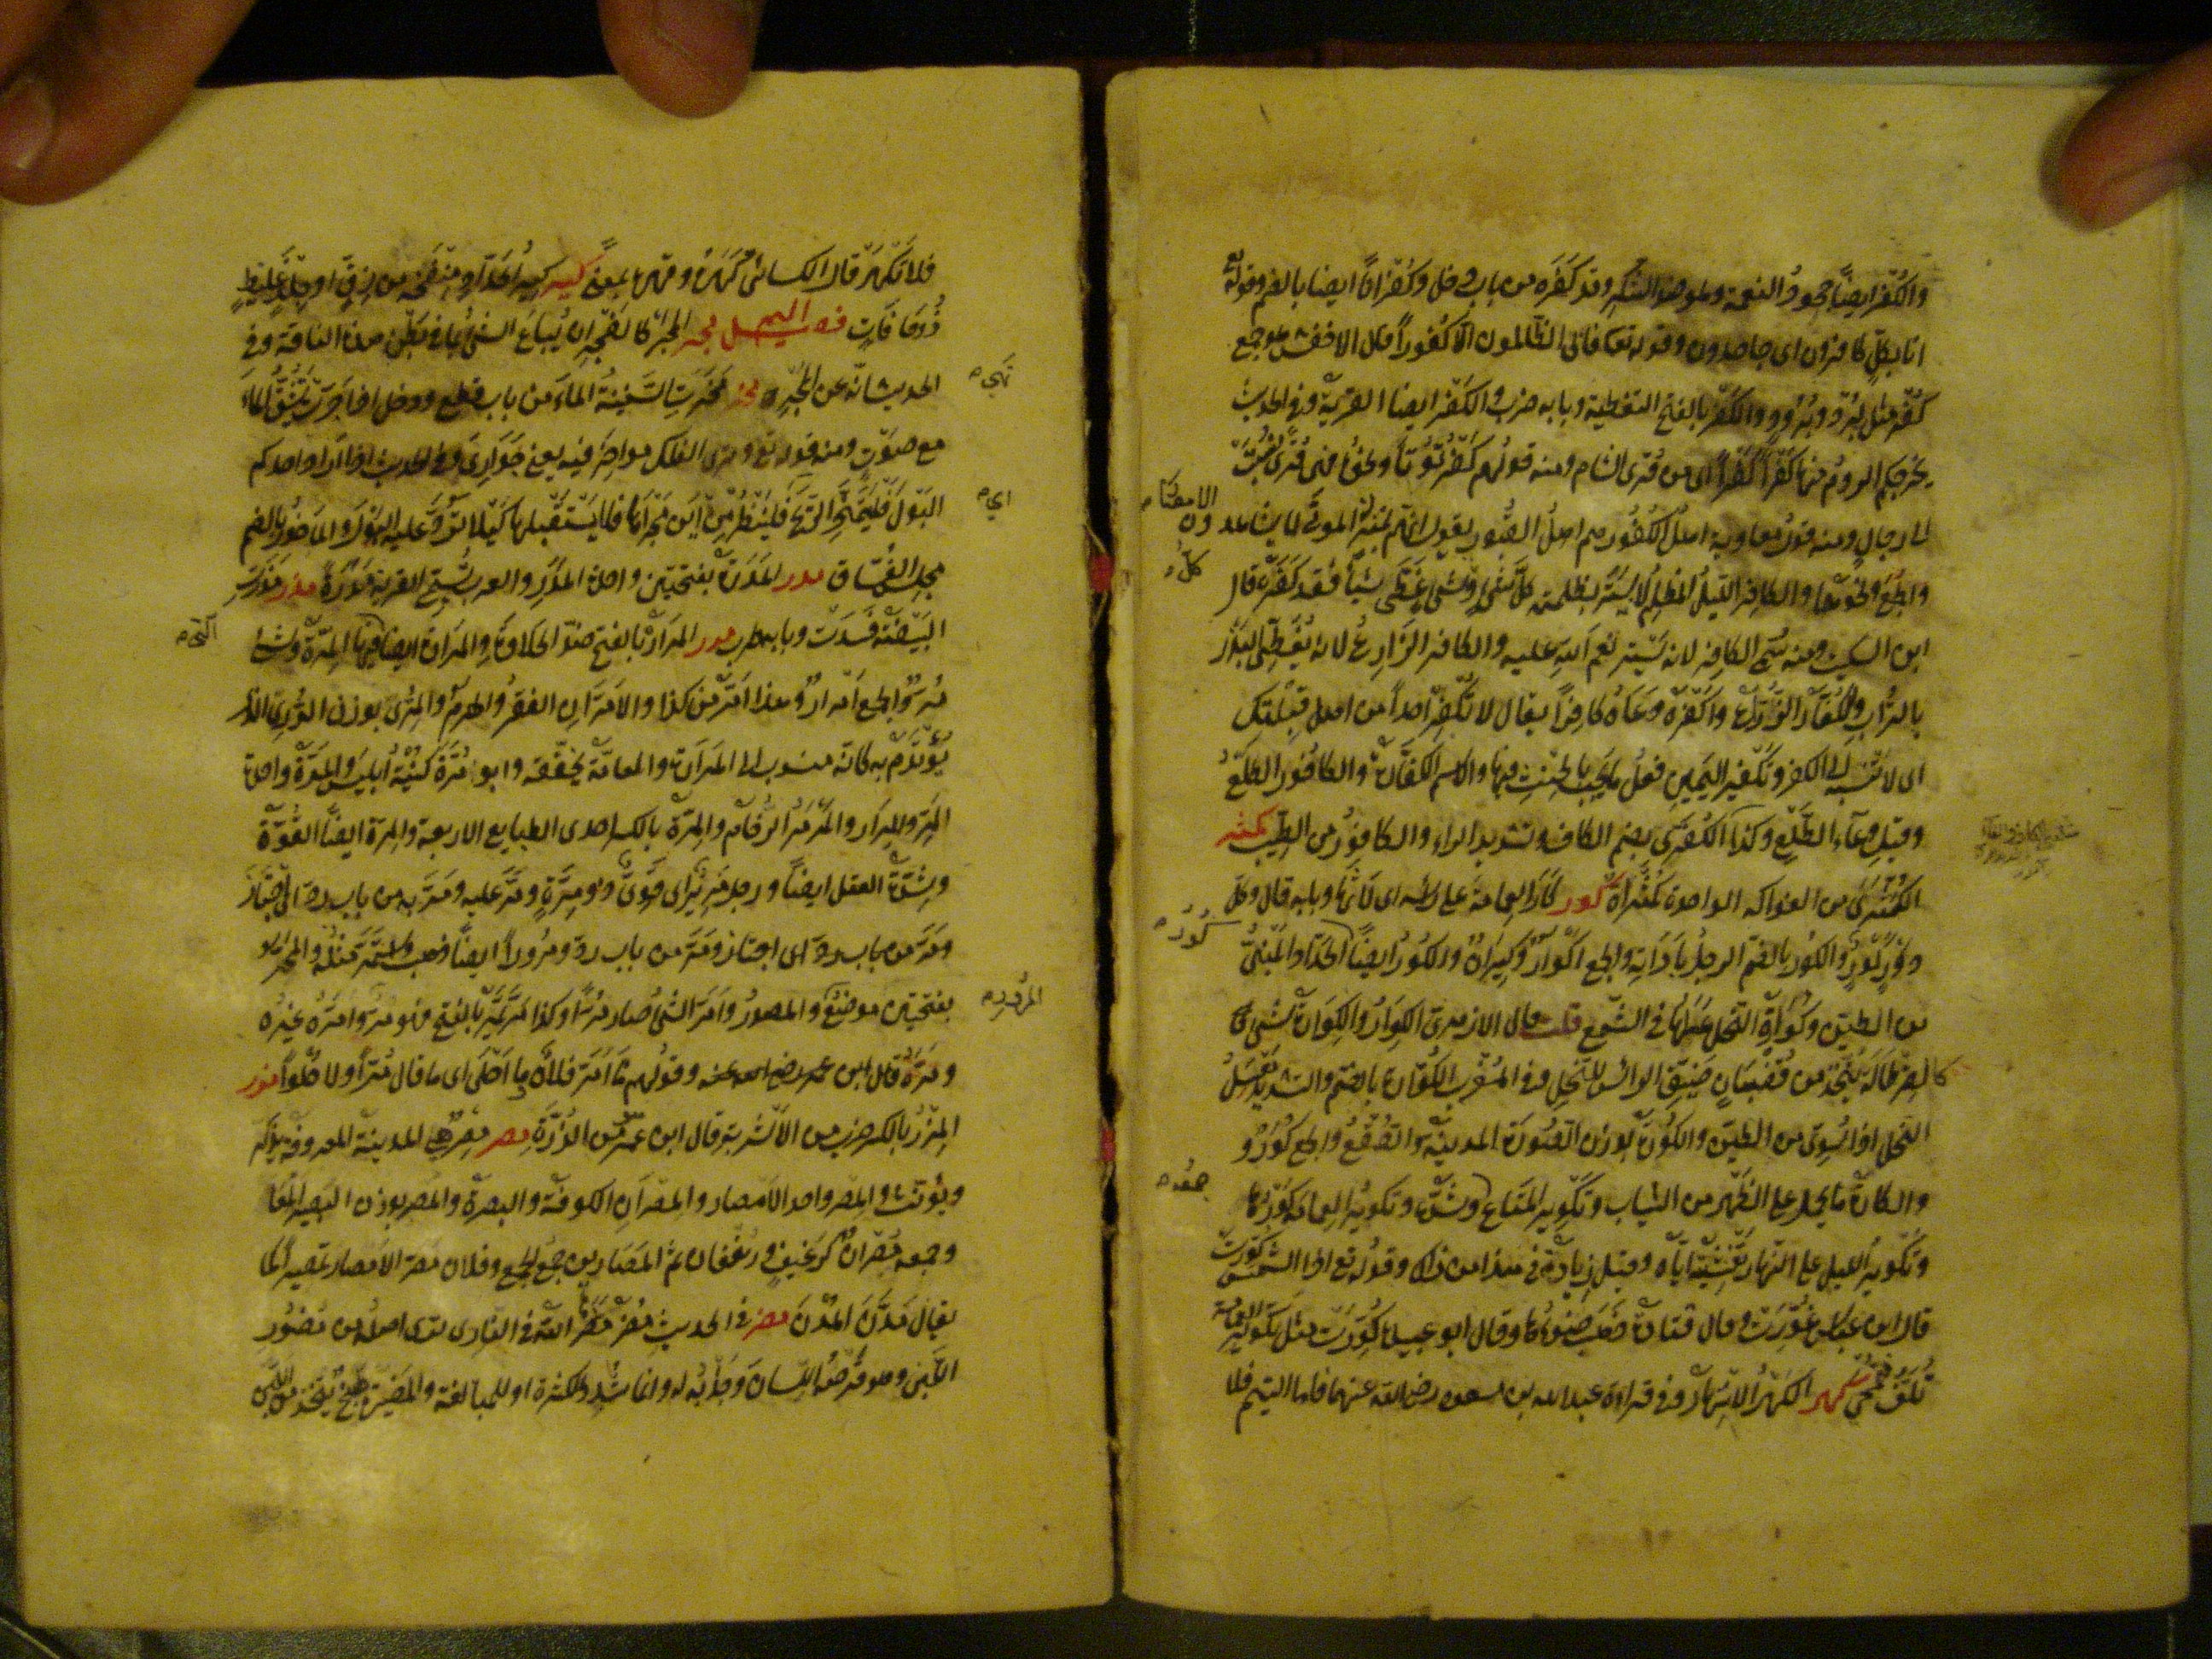 والكفر ايضاً جحود النعمة وهو ضد الشكر وقد كفره من باب دخل وكفرانا ايضا بالضم وقوله تع
انا بكل كافرون اى جاحدون وقوله تعا فابى الظالمون الا كفورا قال الاخفش هو جمع
كفر مثل برد وبرود والكفر بالفتح التغطية وبابه ضرب والكفر ايضا القرية وفى الحديث
يخرجكم الروم منها كفرا كفرا اى من قرى الشام ومنه قولهم كفر توثا ونحو فهى قرى نسبت
الى رجال ومنه قول معاوية اهل الكفور هم اهل القبور يقول انهم بمنزلة الموتى لا يشاهدون الامصار
والجمع ونحوهما والكافر الليل المظلم لانه يستر بظلمته كل شئ وكل شئ غطى شيأ فقد كفره قال
ابن السكيت ومنه سمى الكافر لانه يستر نعم الله عليه والكافر الزارع لانه يغطى البذر
بالتراب والكفار الزراع واكفره دعاه كافرا يقال لا تكفر احدا من اهل قبلتك
اى لا تنسبه الى الكفر وتكفير اليمين فعل ما يجب بالحنث فيها والاسم الكفارة والكافور الطلع
وقيل وعاء الطلع وكذا الكفرى بضم الكاف وتشديد الراء والكافور من الطيب كمثر
الكمثرى من الفواكه الواحدة كمثراة كور كار العمامة على راسه اى لاثها وبابه قال وكل
دور كور والكور بالضم الرحل باداته والجمع اكوار وكيران والكور ايضا كور الحداد المبنى
من الطين وكوارة النحل عسلها فى الشمع قلت قال الازهرى الكوار والكوارة شئ
كالقرطالة يتخذ من قضبان ضيق الراس للنحل وفى المغرب الكوارة بالضم والتشديد معسل
النحل اذا سوى من الطين والكورة بوزن الصورة المدينة والصقع والجمع كور
والكارة ما يحمل على الظهر من الثياب وتكوير المتاع جمعه وشده وتكوير العمامة كورها
وتكوير الليل على النهار تغشيته اياه وقيل زيادة فى هذا من ذاك وقوله تع اذا الشمس كورت
قال ابن عباس غورت وقال قتادة ذهب ضوءها وقال ابو عبيدة كورت مثل تكوير العمامة
تلف فتمحى كهر الكهر الانتهار وفى قراءة عبد الله بن مسعود رضى الله عنهما فاما اليتيم فلا
فلا تكهر قال الكسائى كهره وقهره بمعنى كير كير الحداد منفخه من زق او جلد غليظ
ذو حافات فصل الميم مجر المجر كالفجر ان يباع الشئ بما فى بطن هذه الناقة وفى
الحديث انه نهى عن المجر مخر مخرت السفينة الماء من باب قطع ودخل اذا جرت تشق الماء
مع صوت ومنه قوله تع وترى الفلك مواخر فيه يعنى جوارى وفى الحديث اذا اراد احدكم
البول فليتمخر الريح اى فلينظر من اين مجراها فلا يستقبلها كيلا ترد عليه البول والماخور بالضم
مجلس الفساق مدر المدرة بفتحتين واحدة المدر والعرب تسمى القرية مدرة مذر مذرت
البيضة فسدت وبابه طرب مرر المرارة بالفتح ضد الحلاوة والمرارة ايضا التى فيها المرة وشئ
مر والجمع امرار وهذا امر من كذا والامران الفقر والهرم والمرى بوزن الدرى الذى
يؤتدم به كانه منسوب الى المرارة والعامة تخففه وابو مرة كنية ابليس والمرة واحدة
المر والمرار والمرمر الرخام والمرة بالكسر احدى الطبايع الاربعة والمرة ايضا القوة
وشدة العقل ايضا ورجل مرير اى قوى ذو مرة ومر عليه ومر به من باب رد اى اجتاز
ومر من باب رد اى اجتاز ومر من باب رد ومرورا ايضا ذهب واستمر مثله والممر
بفتحتين موضع المرور والمصدر وامر الشئ صار مرا وكذا مر يمر بالفتح فهو مر وامره غيره
ومرره قال ابن عمر رضى الله عنه وقولهم ما امر فلان وما احلى اى ما قال مرا ولا حلوا مزر
المزر بالكسر ضرب من الاشربة قال ابن عمر هو من الذرة مصر مصر هى المدينة المعروفة يذكر
ويؤنث والمصر واحد الامصار والمصران الكوفة والبصرة والمصير بوزن البصير المعا
وجمعه مصران كرغيف ورغفان ثم المصارين جمع الجمع وفلان مصر الامصار تمصيرا كما
يقال مدن المدن مضر فى الحديث مضر مضرها الله فى النار نرى اصله من مضور
اللبن وهو قرصه اللسان وحذيه له وانما شدد للكثرة او للمبالغة والمضيرة طبيخ يتخذ من اللبن